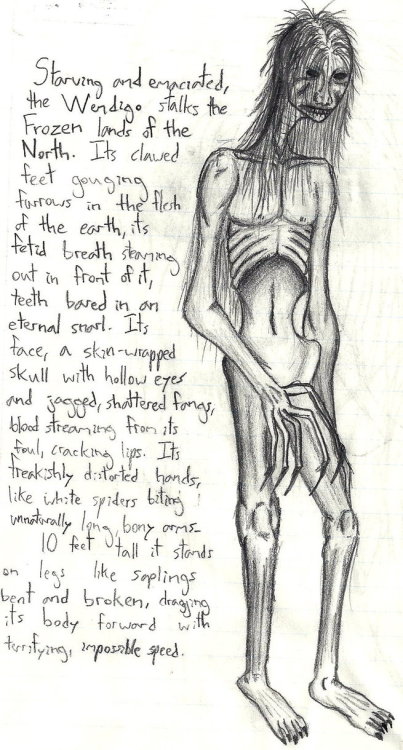 Starving and emaciated,
the Wendigo stalks the
Frozen lands of the
North. Its clawed
feet gouging
furrows in the flesh
of the earth, its
fetid breath steaming
out in front of it,
teeth bared in an
eternal snarl. Its
face, a skin-wrapped
skull with hollow eyes
and jagged, shattered fangs,
blood streaming from its
foul, cracking lips. Its
freakishly distorted hands,
like white spiders biting
unnaturally long, bony arms.
10 feet tall it stands
on legs like saplings
bent and broken, dragging
its body forward with
terrifying, impossible speed.